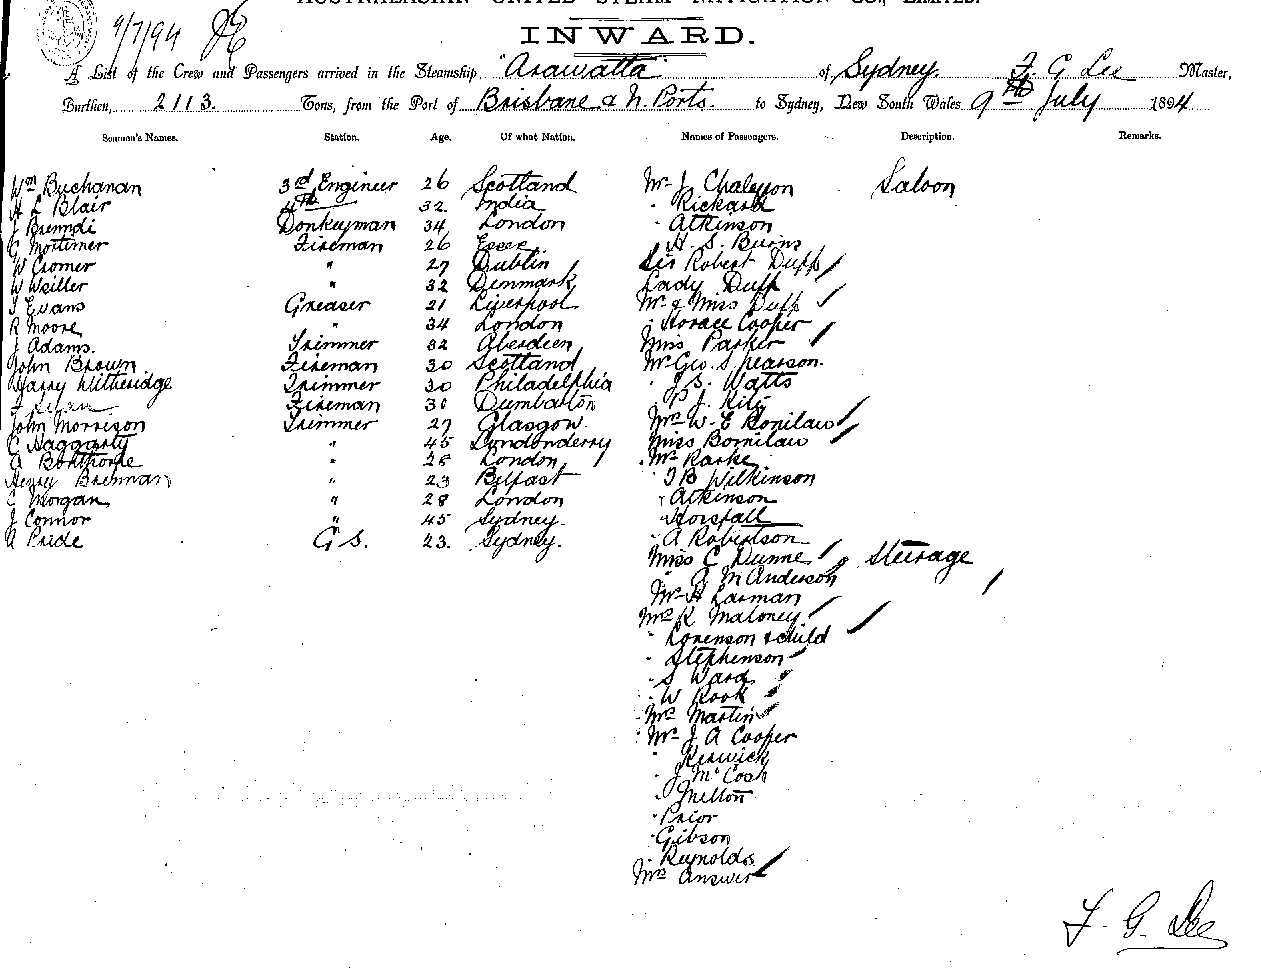 AUSTRALASIAN UNITED STEAM NAVIGATION CO., LIMITED.
9/7/94
INWARD.
A List of the Crew and Passengers arrived in the Steamship "Arawatta" of Sydney. F. G Lee Master,
Burthen, 2113. Tons, from the Port of Brisbane & N. Ports. to Sydney, New South Wales 9th July 1894
Seamen's Names. Station. Age. Of what Nation. Names of Passengers. Description. Remarks.
Wm Buchanan 3rd Engineer 26 Scotland Mr J. Saloon
H L Blair 4th 32. India " Rickard
J Donkeyman 34 London " Atkinson
G Mortimer Fireman 26 Essex. H. S. Burns
W Cromer " 27 Dublin Sir Robert Duff
W Weiller " 32 Denmark Lady Duff
T Evans Greaser 21 Liverpool Mr & Miss Duff
R Moore " 34 London " Horace Cooper
J Adams. Trimmer 32 Aberdeen Miss Parker
John Brown. Fireman 30 Scotland Mr Geo. S. pearson.
Harry Witheridge Trimmer 30 Philadelphia " J. S. Watts
Fireman 30 Dumbarton " P J.
John Morrison Trimmer 27 Glasgow. Mrs W. E Bonilaw
C Haggarty " 45 Londonderry Miss Bonilaw
A " 28 London Mr
Henry Brennan " 23 Belfast " J B Wilkinson
C Morgan " 28 London " Atkinson
J Connor " 45 Sydney. " Horsfall
A Pride G S. 23. Sydney. " A Robertson
Miss C Dunne Steerage
" A M Anderson
Mr H Larman
Mrs K Maloney
" Lorenson & child
" Stephenson
" S Ward
" W Rook
Mrs Martin
Mr J A Cooper
" Keswick
" J McCosh
" Milton
" Prior
" Gibson
" Reynolds
Mrs Answer
F. G. Lee